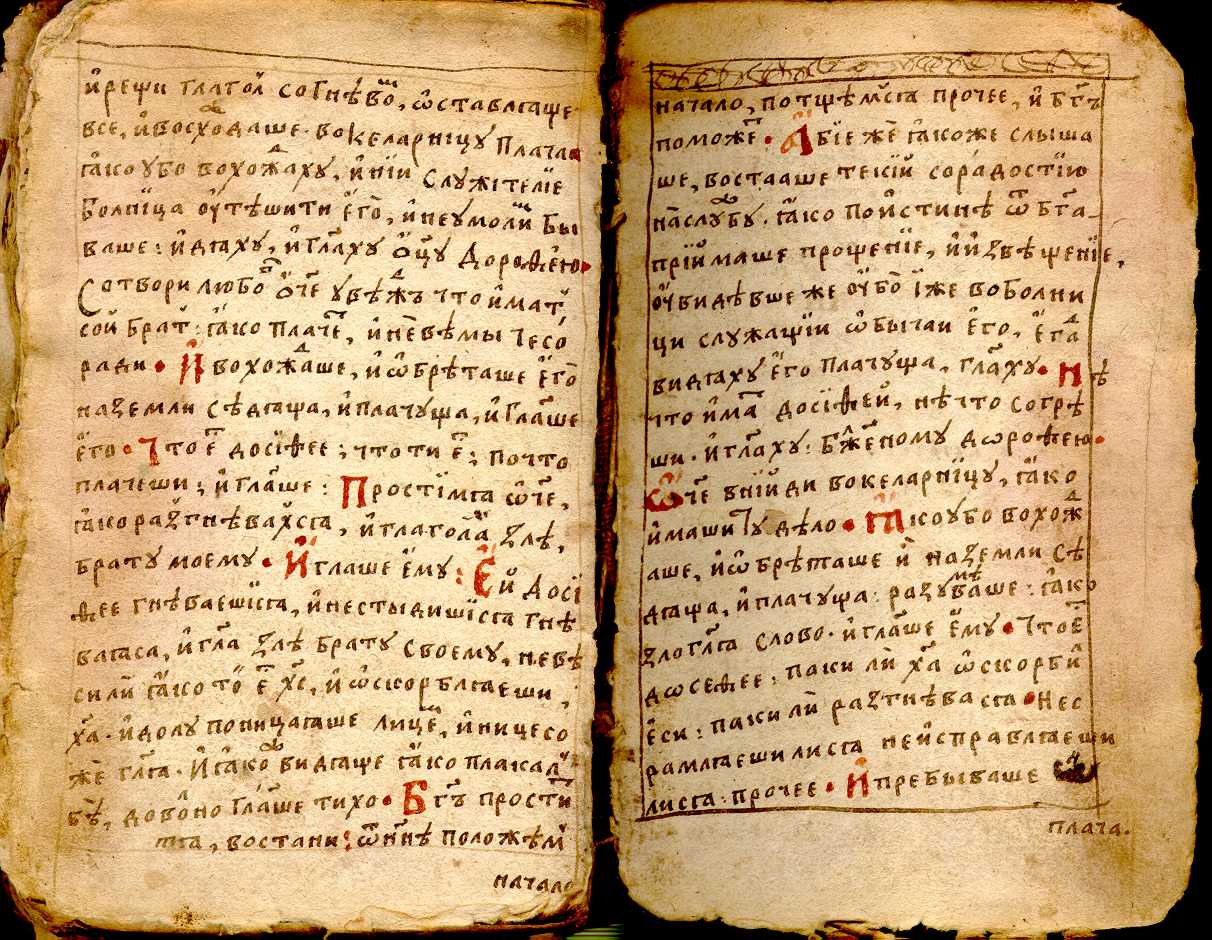 и҆рещи глаго́л согнѣво́м, ѡ҆ставлѧаще
все, и҆восхождаше вокеларнїцу плача
ꙗ҆коубо вохождаху, и҆нїи служїтелїе
болнїца оу҆тѣшити є҆го̀, и҆неумоли́м бы
ваше: и҆дѧху, и҆гл҃аху ѻ҆ц҃у дороѳею
Сотвори любо́в ѻ҆ч҃е увѣждь что и҆мат
сой брат: ꙗ҆ко плаче́т, и҆невѣмы чесо́
ради. И҆ вохождаше, и҆ѡ҆брѣташе є҆го̀
наземли сѣдѧща, и҆плачуща, и҆гл҃аше
є҆го. Что є҆́ст досїѳее; чтоти є҆́ст; почто
плачеши; и҆гл҃аше: Простїмѧ ѡ҆ч҃е,
ꙗ҆коразгнѣвахсѧ, и҆глагола́х злѣ,
брату моему. И҆глаше є҆му: Є҆й досї
ѳее гнѣваешїсѧ, и҆нестыдишїсѧ гнѣ
ваѧса, и҆гл҃а злѣ брату своему, невѣ
сили ꙗ҆ко то̀ є҆́ст хс҃, и҆ѡ҆скорблѧеши
ха҃. и҆долу поницаꙗше лице́м, и҆ничесо́
же гл҃ѧ. И҆ꙗ҆ко видѧще ꙗ҆ко плакал
бѣ, дово́лно гл҃аше тихо. Бг҃ъ прости́т
тѧ, востани: ѿнн҃ѣ положѣм
начало
начало, потщѣмсѧ прочее, и҆ бг҃ъ
поможе́т. А҆бїе же ꙗ҆коже слыша
ше, востааше текїй сорадостїю
наслужбу. ꙗ҆ко пои҆стинѣ ѿ бг҃а
прїимаше прощенїе, и҆ и҆звѣщенїе,
оу҆видѣвше же оу҆бо̀ ї҆же воболни
ци служащїи ѡ҆бычаи є҆го, є҆гда
видѧху є҆го плачуща, гл҃аху. Нѣ
что и҆мат досїѳей, нѣчто согрѣ
ши. и҆гл҃аху: бл҃женному дороѳею.
Ѡ҆ч҃е внїйди вокеларнїцу, ꙗ҆ко
и҆маши ту дѣло. Ꙗ҆коубо вохожд
аше, и҆ѡ҆брѣташе и҆ наземли сѣ
дѧща, и҆плачуща: разумѣваше: ꙗ҆ко
злогл҃ѧ слово. и҆гл҃аше є҆му. Что є҆́ст
досеѳее: паки ли ха҃ ѡ҆скорби́
є҆си: паки ли разгнѣвасѧ. Нес
рамлѧеши лисѧ неи҆справлѧеши
лисѧ: прочее. И҆ пребываше
плача.